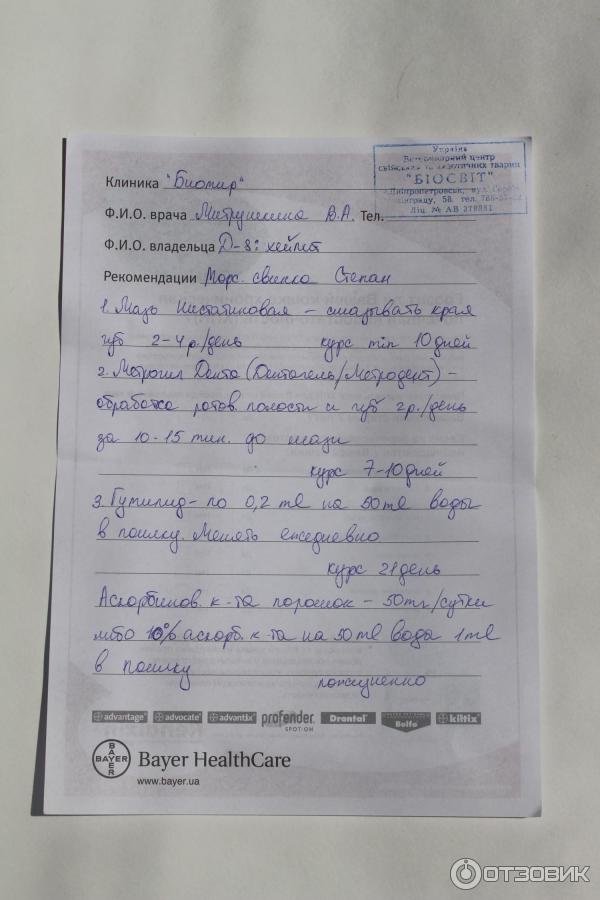 Україна
Ветеринарний центр
свійських та екзотичних тварин
"БІОСВІТ"
м.Дніпропетровськ, вул.
58. тел.
Ліц. № АВ 378881
Клиника "Биомир"
Ф.И.О. врача Митрушкина В.А. Тел.
Ф.И.О. владельца D-s: хейлит
Рекомендации Морс. свинка Степан
1. Мазь Нистатиновая – смазывать края
губ 2-4 р./день курс min 10 дней
2. Метрогил Дента (Дентагель/Метродент) –
обработка ротов. полости и губ 2р./день
за 10-15 мин. до мази
курс 7-10 дней
3. Гумилид – по 0,2 ml на 50 ml воды
в поилку. Менять ежедневно
курс 21 день
Аскорбинов. к-та порошок – 50 мг/сутки
либо 10% аскорб. к-та на 50 ml воды 1 ml
в поилку
пожизненно
advantage advocate advantix profender SPOT-ON Drontal Bolfo kiltix
BAYER Bayer HealthCare
www.bayer.ua
ОТЗОВИК